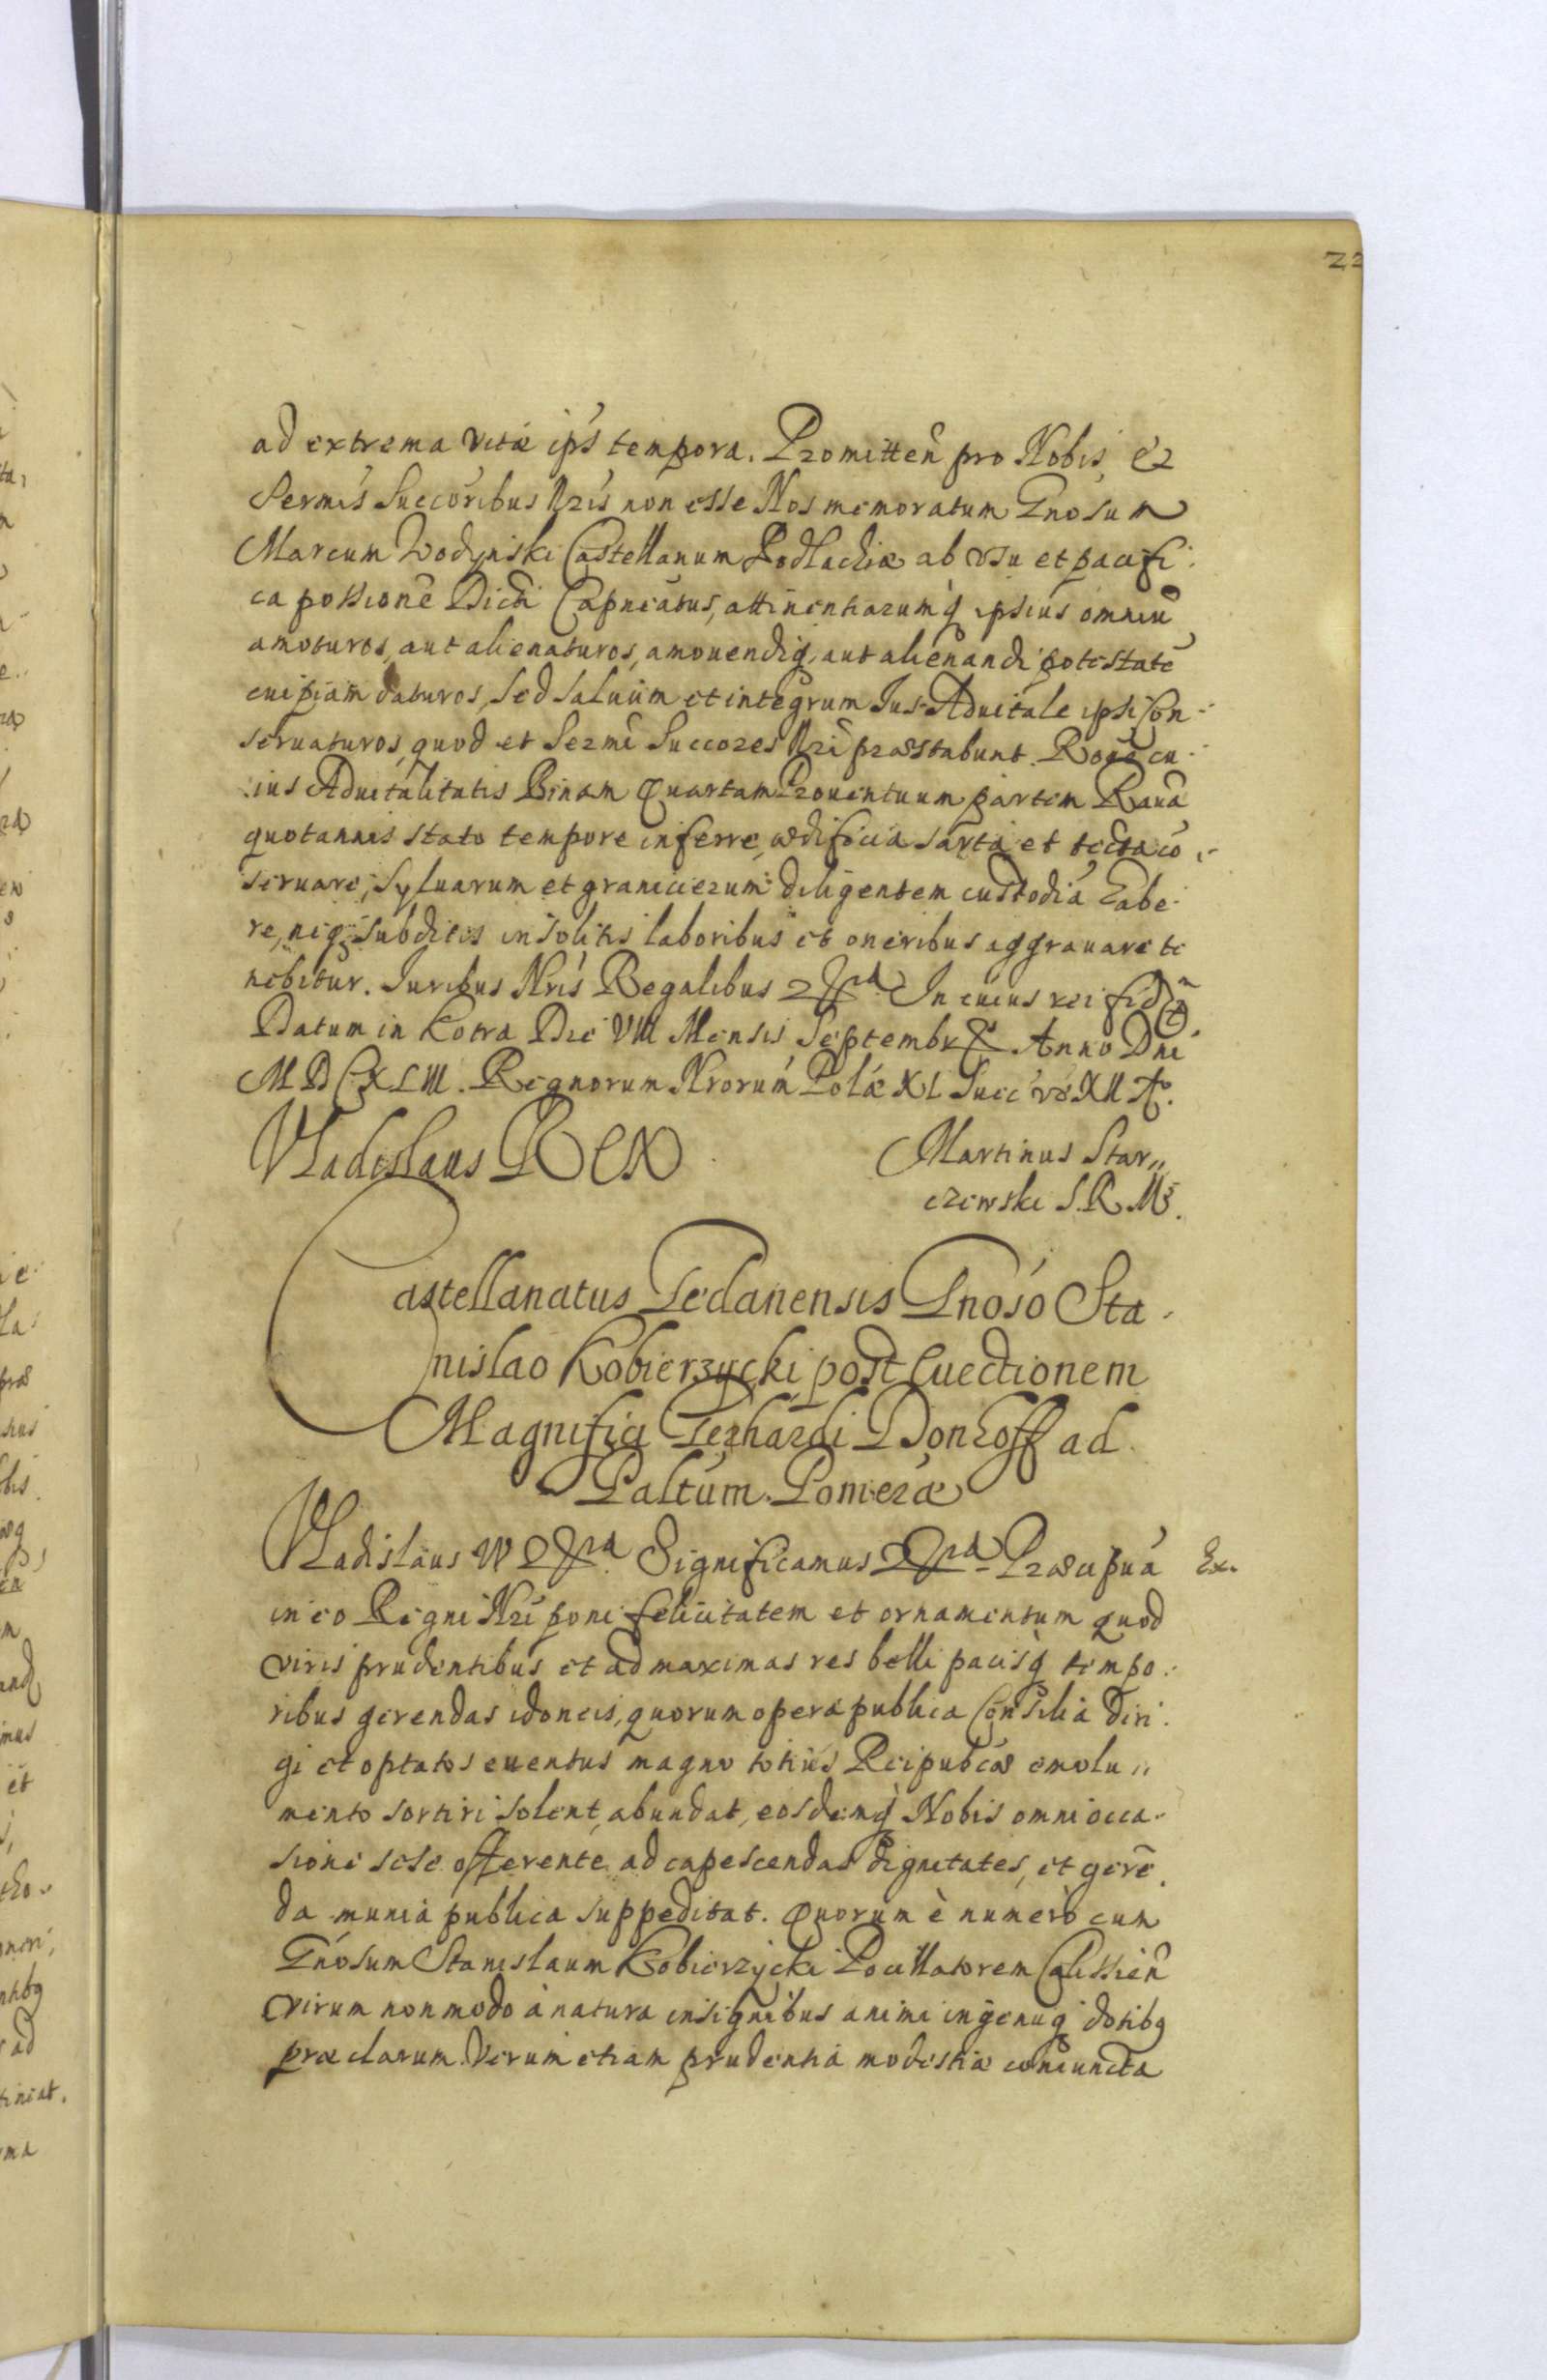 22
ad extrema vitæ ip̃s tempora. Promitteñ pro Nobis et
Sermis Succoribus Nris non esse Nos memoratum Gnosum
Marcum Wodynski Castellanum Podlachiæ ab vsu et pacifi:
ca possione Dicti Capneatus, attinentiarumq̃ ipsius omniũ
amoturos, aut alienaturos, amouendiq, aut alienandi potestatẽ
cuipiam daturos, sed saluum et integrum Jus Aduitale ipsi Con-
seruaturos, quod et Sermi Succores Nri præstabunt. Rone cu-
ius Aduitalitatis Binam Quartam Prouentuum partem Rauã
quotannis stato tempore inferre, ædificia sarta et tecta cõ-
seruare, syluarum et granicierum diligentem custodiã habe-
re, neq subditos insolitis laboribus et oneribus aggrauare te
nebitur. Juribus Nris Regalibus In cuius rei fid
Datum in Kotra Die VIII Mensis Septembr Anno Dni
MDCXLIII. Regnorum Nrorum Polæ XI Suec vo XII Ao.
Vladislaus REX
Martinus Star,,
czewski S.R.M.
Castellanatus Gedanensis Gnoso Sta-
nislao Kobierzycki post Euectionem
Magnifici Gerhardi Donhoff ad
Paltum. Pomeræ
Vladislaus IV Significamus Præcipuã
Ex.
in eo Regni Nri poni felicitatem et ornamentum quod
viris prudentibus et ad maximas res belli pacisq̃ tempo:
ribus gerendas idoneis, quorum opera publica Consilia diri:
gi et optatos euentus magno totius Reipubcæ emolu,,
mento sortiri solent, abundat, eosdemq̃ Nobis omni occa-
sione sese offerente ad capescendas dignitates, et gerẽ.
da munia publica suppeditat. Quorum è numero cum
Gnosum Stanislaum Kobierzycki Pocillatorem Calissień
virum non modo à natura insignibus animi ingeniiq dotibq
præclarum. Verum etiam prudentia modestiæ coniuncta